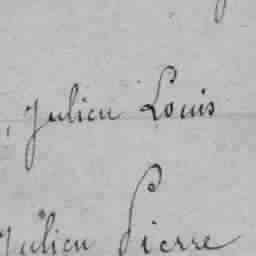 Julien Louis
Julien Pierre